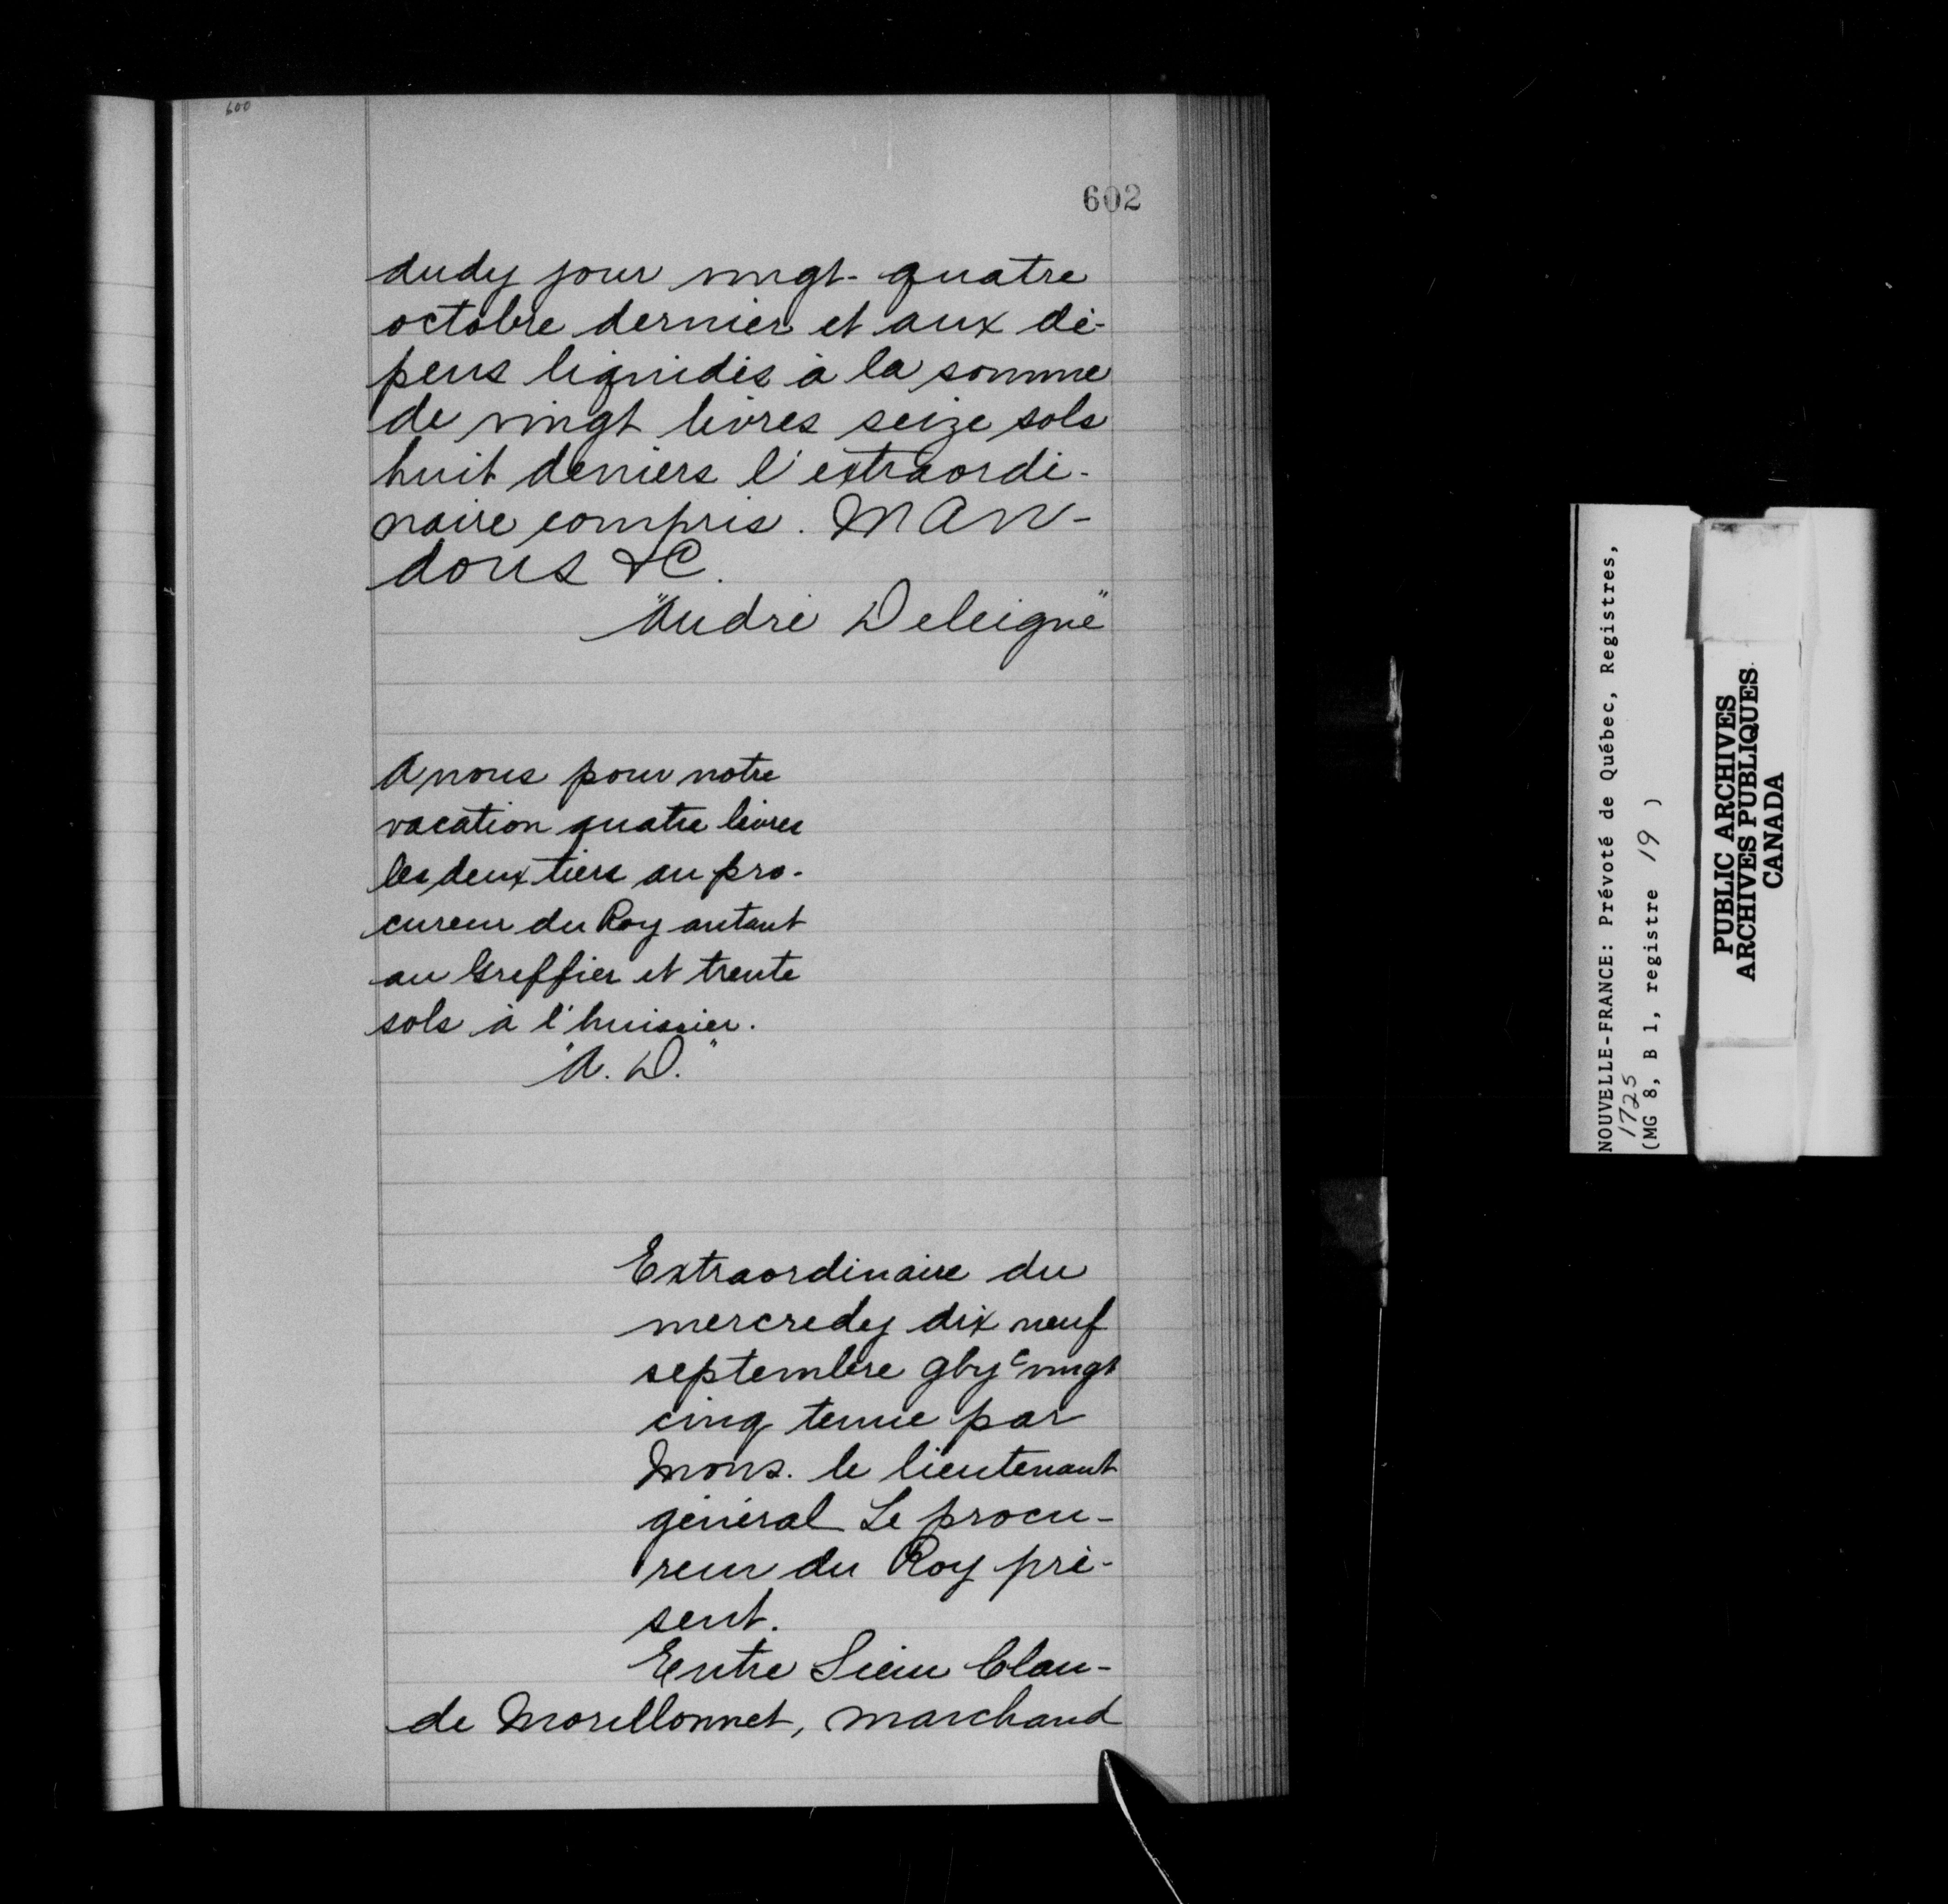 600
602
dudy jour vingt-quatre
octobre dernier et aux dé-
pens liquidés à la somme
de vingt livres seize sols
huit deniers l'extraordi-
naire compris. MAN-
dons &C.
"André Deleigne"
A nous pour notre
vacation quatre livres
les deux tiers au pro-
cureur du Roy autant
au Greffier et trente
sols à l'huissier.
"A. D."
Extraordinaire du
mercredy dix neuf
septembre gbyc vingt
cinq tenue par
Mons. le lieutenant
général Le procu-
reur du Roy pré-
sent.
Entre Sieur Clau-
de Morillonnet, marchand
NOUVELLE-FRANCE: Prévoté de Québec, Registres,
1725
(MG 8, B 1, registre 19 )
PUBLIC ARCHIVES
ARCHIVES PUBLIQUES
CANADA